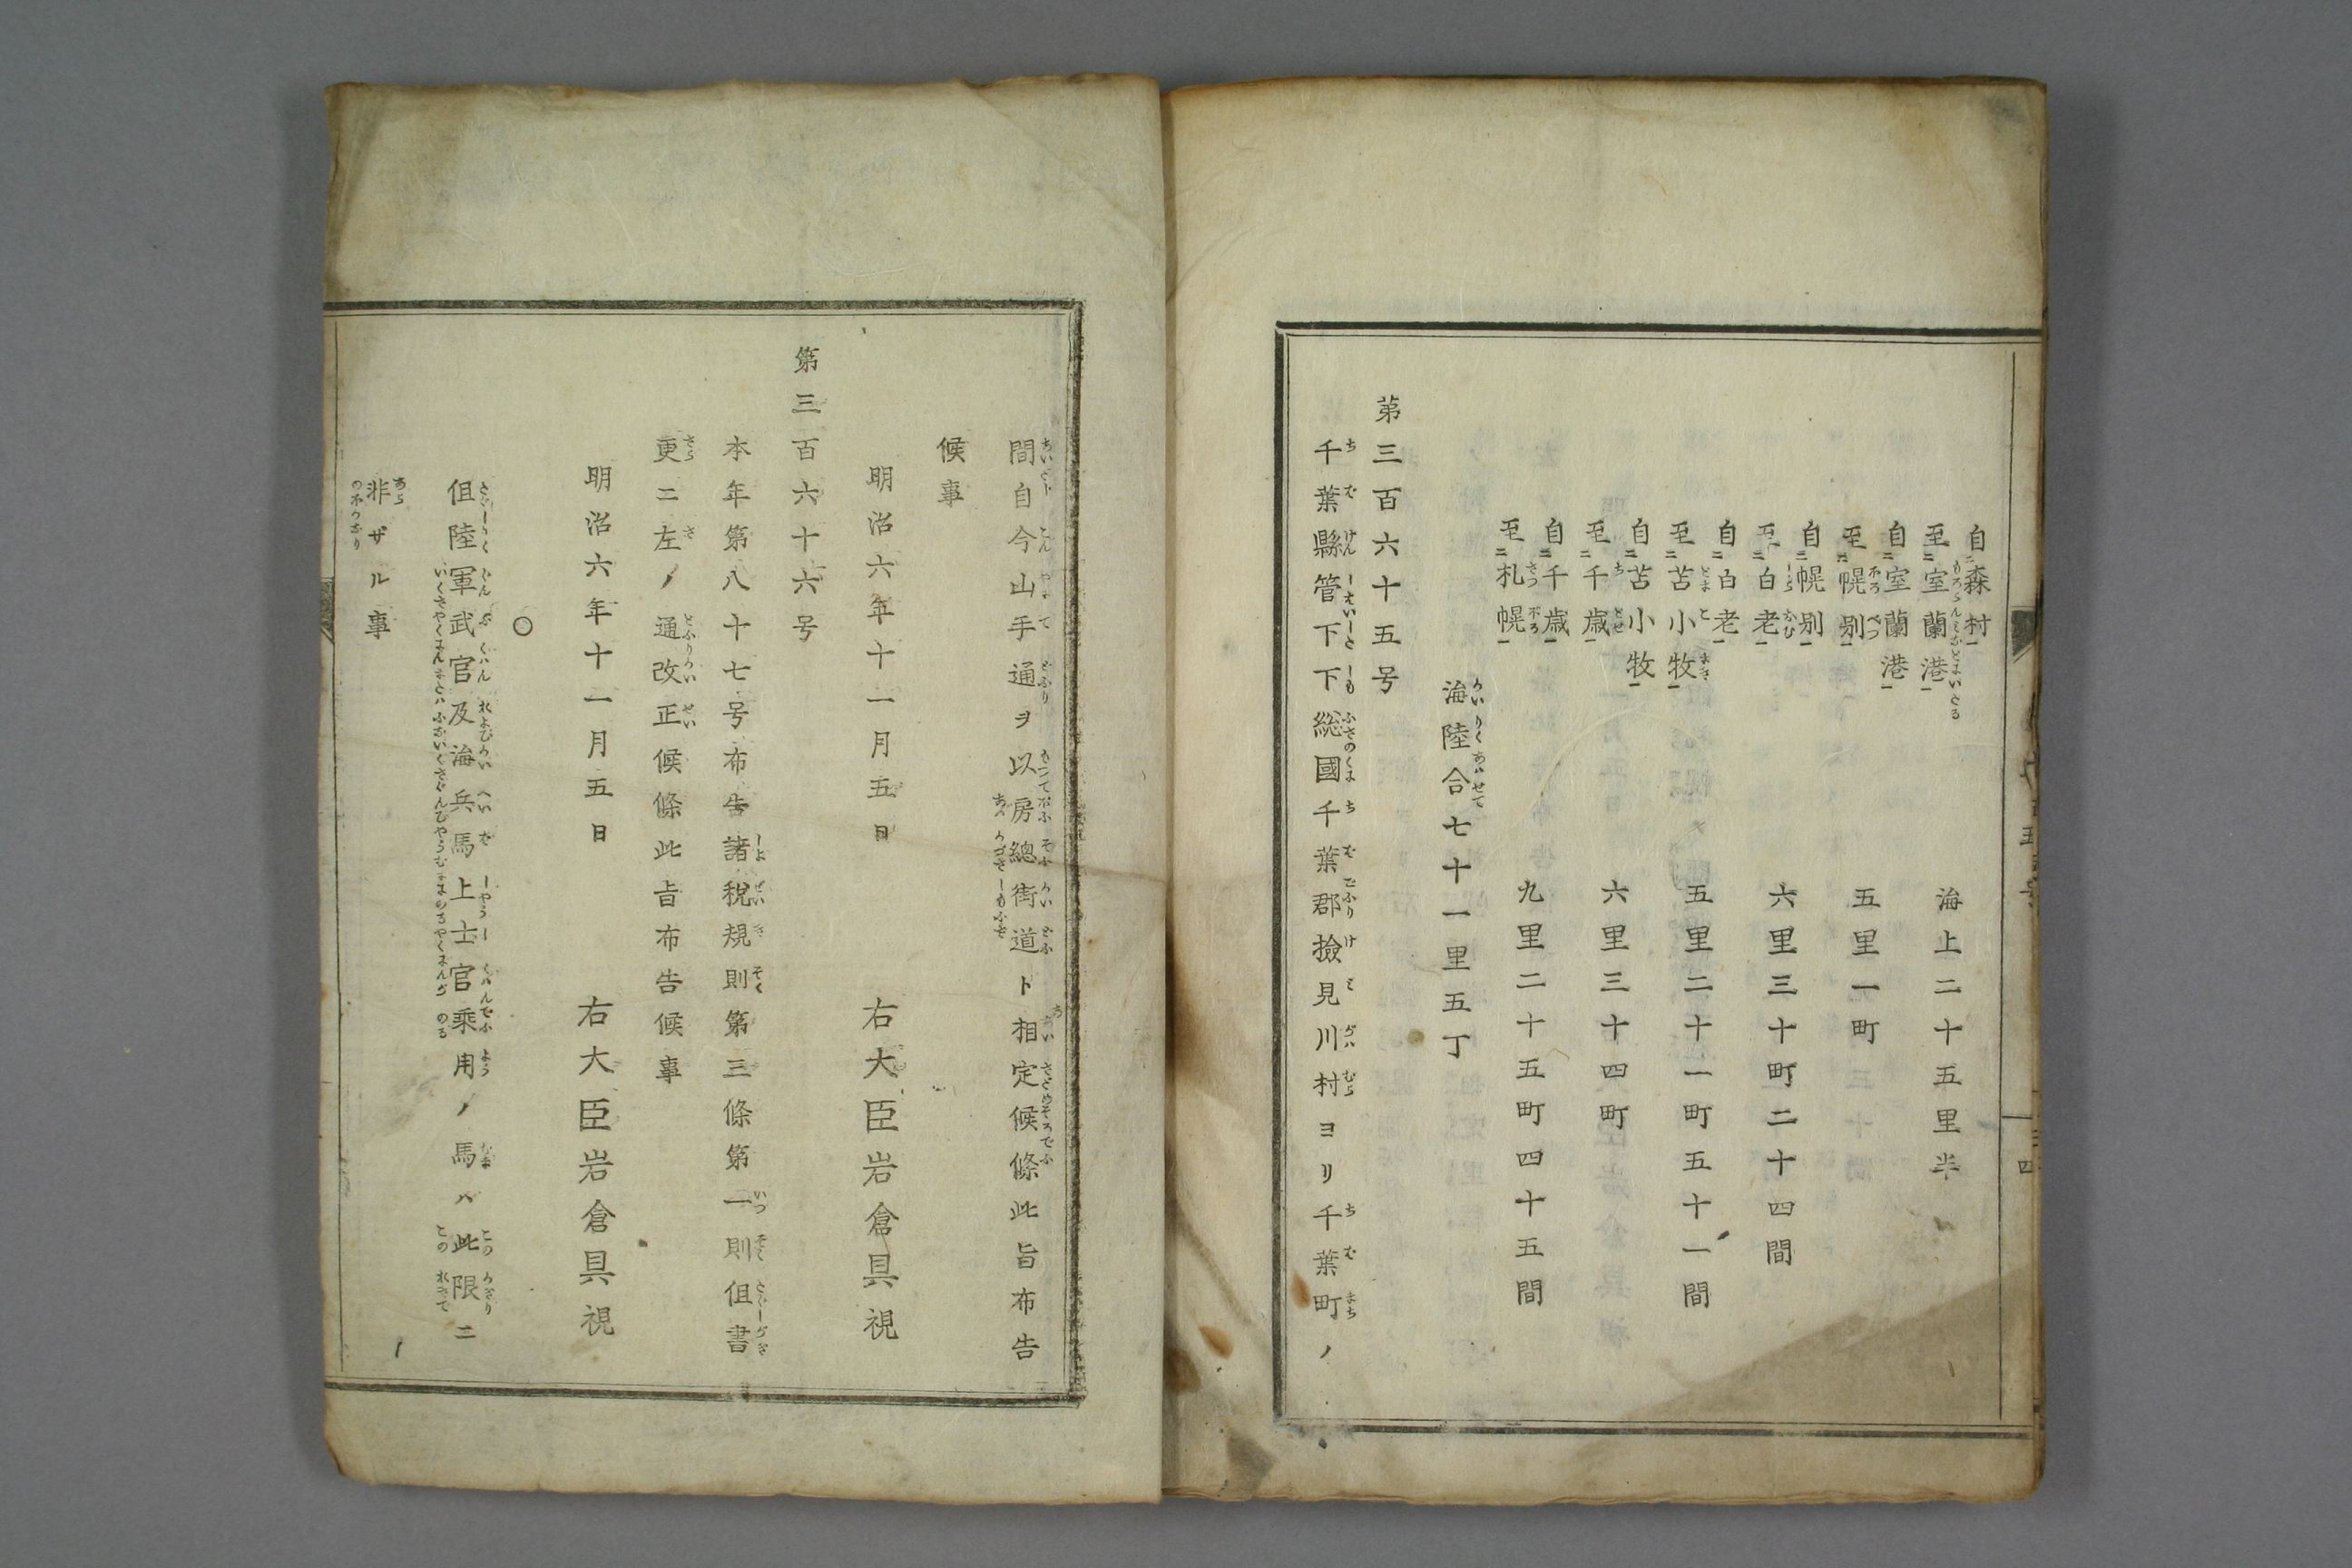 自森村
至室蘭港
海上二十五里半
自室蘭港
至幌別
五里一町
自幌別
至白老
六里三十町二十四間
自白老
至苫小牧
五里二十一町五十一間
自苫小牧
至千歳
六里三十四町
自千歳
至札幌
九里二十五町四十五間
海陸合七十一里五丁
第三百六十五号
千葉縣管下下総國千葉郡撿見川村ヨリ千葉町ノ
間自今山手通ヲ以房總街道ト相定候條此旨布告
候事
明治六年十一月五日
右大臣岩倉具視
第三百六十六号
本年第八十七号布告諸税規則第三條第一則但書
更ニ左ノ通改正候條此旨布告候事
明治六年十一月五日
右大臣岩倉具視
○
但陸軍武官及海兵馬上士官乗用ノ馬ハ此限ニ
非ザル事